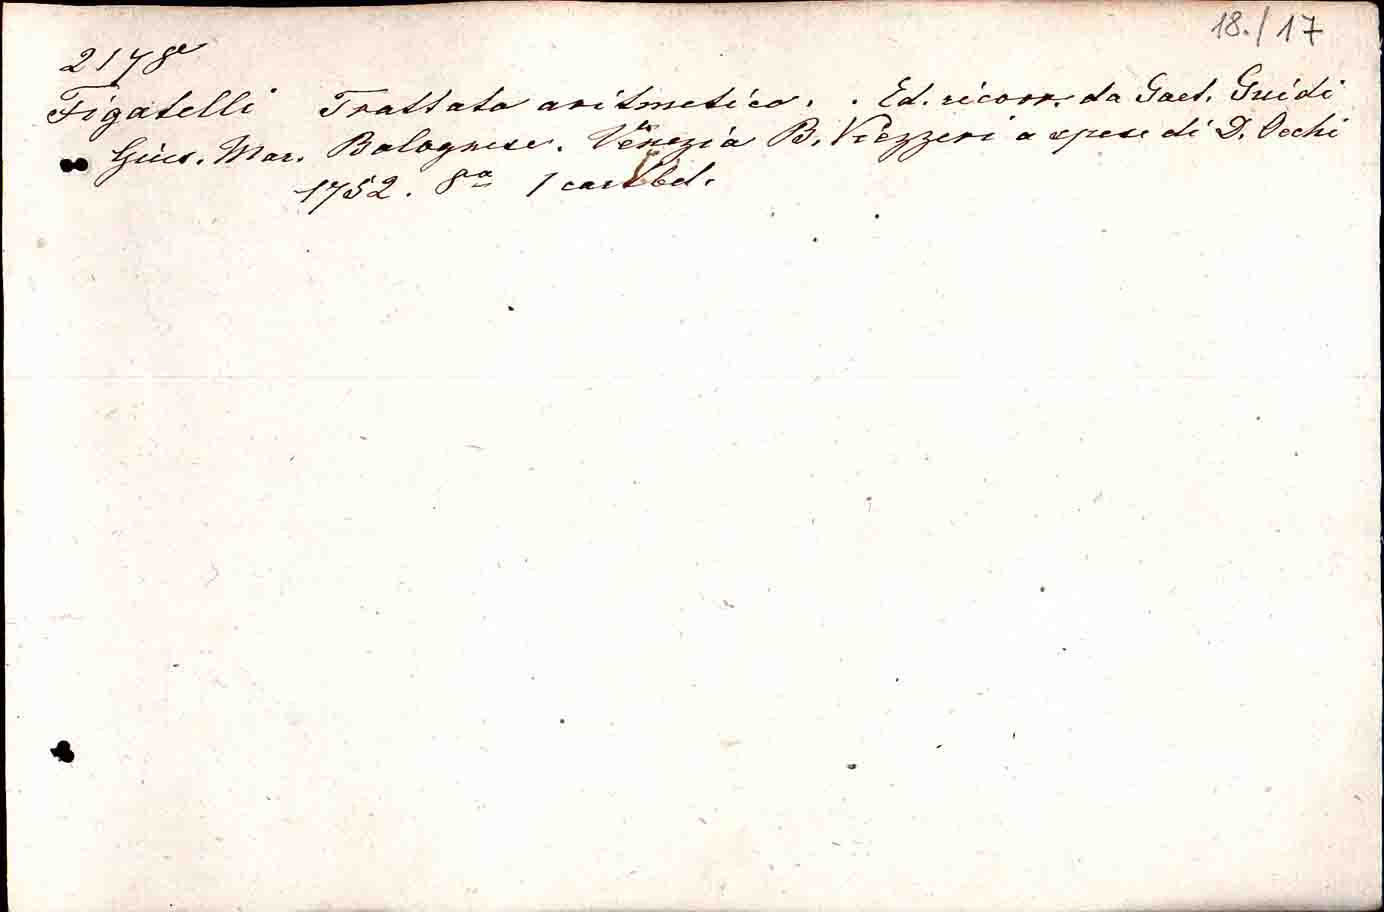 18./17
2178e
Figatelli Trattato aritmetico. . Ed. ricorr. da Gaet. Guidi
Gius. Mar. Bolognese. Venezia B. Viezzeri a spese di D. Occhi
1752. 8o 1 cart bd.